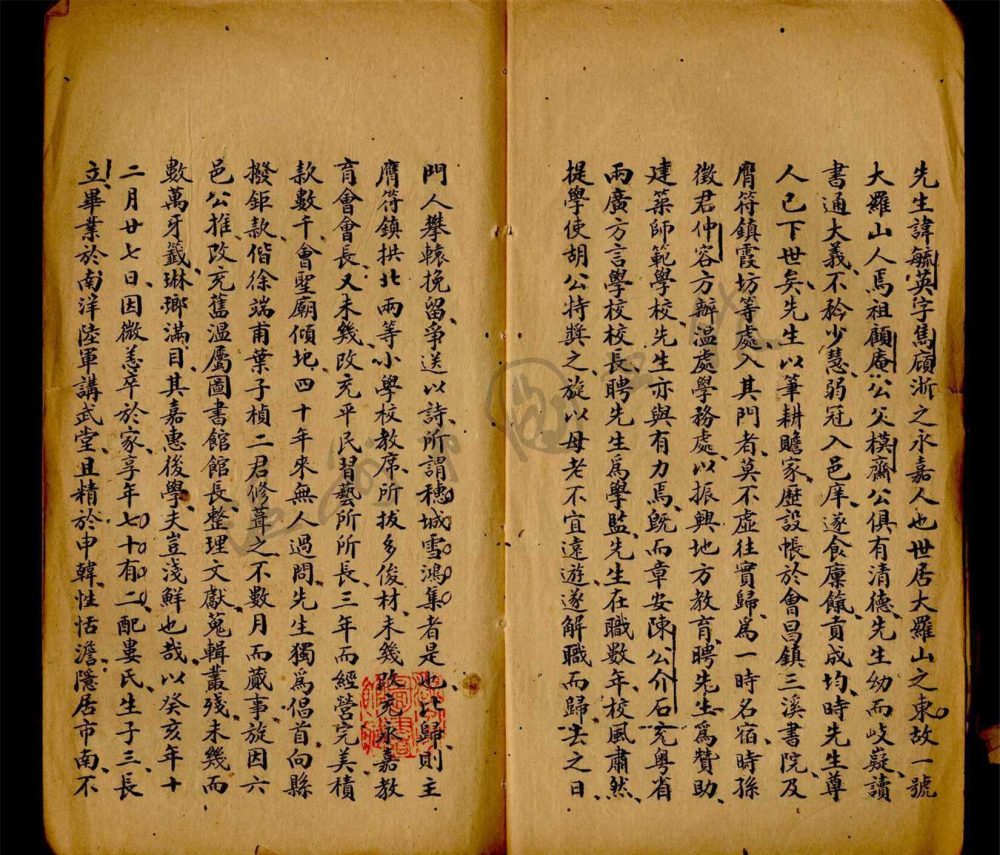 先生諱毓英字雋廎浙之永嘉人也世居大羅山之東故一號
大羅山人焉祖顧庵公父模齋公俱有清德先生幼而岐嶷讀
書通大義不矜少慧弱冠入邑庠遂食廩餼貢成均時先生尊
人已下世矣先生以筆耕贍家歷設帳於會昌鎮三溪書院及
膺符鎮霞坊等處入其門者莫不虛往實歸爲一時名宿時孫
徵君仲容方辦溫處學務處以振興地方教育聘先生爲贊助
建築師範學校先生亦與有力焉旣而章安陳公介石充粵省
兩廣方言學校校長聘先生爲學監先生在職數年校風肅然
提學使胡公特奬之旋以母老不宜遠遊遂解職而歸去之日
門人攀轅挽留爭送以詩所謂穗城雪鴻集者是也比歸則主
膺符鎮拱北兩等小學校教席所拔多俊材未幾改充永嘉教
育會會長又未幾改充平民習藝所所長三年而經營完美積
款數千會聖廟傾圮四十年來無人過問先生獨爲倡首向縣
撥鉅款偕徐端甫葉子楨二君修葺之不數月而蕆事旋因六
邑公推改充舊溫屬圖書館館長整理文獻蒐輯叢殘未幾而
數萬牙籤琳瑯滿目其嘉惠後學夫豈淺鮮也哉以癸亥年十
二月廿七日因微恙卒於家享年七十有二配婁氏生子三長
立畢業於南洋陸軍講武堂且精於申韓性恬澹隱居市南不